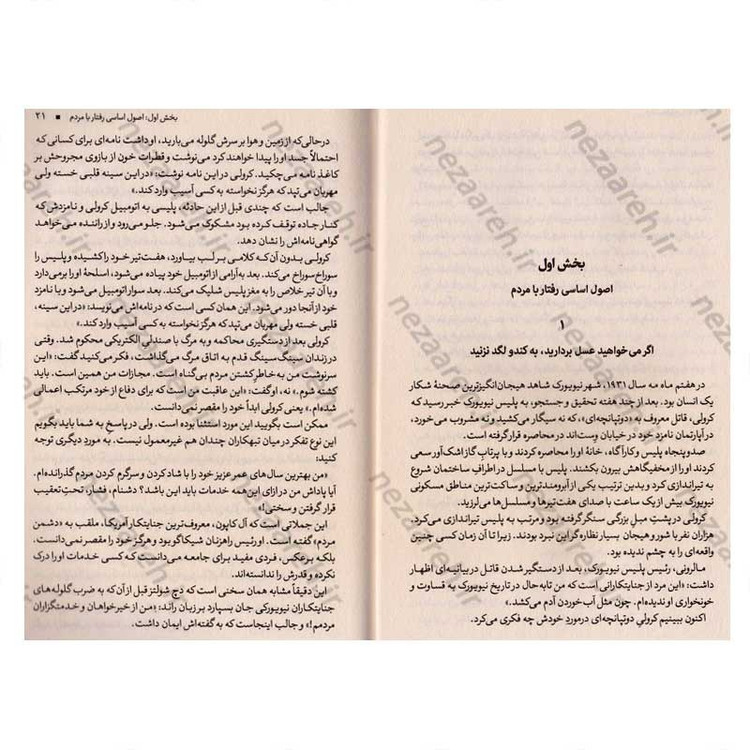 بخش اول
اصول اساسی رفتار با مردم
۱
اگر می‌خواهید عسل بردارید، به کندو لگد نزنید
در هفتم ماه مه سال ۱۹۳۱، شهر نیویورک شاهد هیجان‌انگیزترین صحنهٔ شکار
یک انسان بود. بعد از چند هفته تحقیق و جستجو، به پلیس نیویورک خبر رسید که
کرولی، قاتل معروف به «دوتپانچه‌ای»، که نه سیگار می‌کشید و نه مشروب می‌خورد،
در آپارتمان نامزد خود در خیابان وست‌اند در محاصره قرار گرفته است.
صد و پنجاه پلیس و کارآگاه، خانهٔ او را محاصره کردند و با پرتاب گاز اشک‌آور سعی
کردند او را از مخفیگاهش بیرون بکشند. پلیس با مسلسل در اطراف ساختمان شروع
به تیراندازی کرد و بدین ترتیب یکی از آبرومندترین و ساکت‌ترین مناطق مسکونی
نیویورک بیش از یک ساعت با صدای هفت‌تیرها و مسلسل‌ها می‌لرزید.
کرولی در پشتِ مبل بزرگی سنگر گرفته بود و مرتب به پلیس تیراندازی می‌کرد.
هزاران نفر با شور و هیجان بسیار نظاره‌گر این نبرد بودند. زیرا تا آن زمان کسی چنین
واقعه‌ای را به چشم ندیده بود.
مالرونی، رئیس پلیس نیویورک، بعد از دستگیر شدن قاتل در بیانیه‌ای اظهار
داشت: «این مرد از جنایتکارانی است که من تا به حال در تاریخ نیویورک به قساوت و
خونخواری او ندیده‌ام. چون مثل آب خوردن آدم می‌کشد.»
اکنون ببینیم کرولیِ دوتپانچه‌ای درمورد خودش چه فکری می‌کرد.
بخش اول: اصول اساسی رفتار با مردم ■ ۲۱
درحالی‌که از زمین و هوا بر سرش گلوله می‌بارید، او داشت نامه‌ای برای کسانی که
احتمالاً جسد او را پیدا خواهند کرد می‌نوشت و قطرات خون از بازوی مجروحش بر
کاغذ نامه می‌چکید. کرولی در این نامه نوشت: «در این سینه قلبی خسته ولی
مهربان می‌تپد که هرگز نخواسته به کسی آسیب وارد کند.»
جالب است که چندی قبل از این حادثه، پلیسی به اتومبیل کرولی و نامزدش که
کنار جاده توقف کرده بود مشکوک می‌شود. جلو می‌رود و از راننده می‌خواهد
گواهی‌نامه‌اش را نشان دهد.
کرولی بدون آن‌که کلامی بر لب بیاورد، هفت‌تیر خود را کشیده و پلیس را
سوراخ‌سوراخ می‌کند. بعد به آرامی از اتومبیل خود پیاده می‌شود، اسلحهٔ او را برمی‌دارد
و با آن تیر خلاص را به مغز پلیس شلیک می‌کند. بعد سوار اتومبیل می‌شود و با نامزد
خود از آنجا دور می‌شود. این همان کسی است که در نامه‌اش می‌نویسد: «در این سینه،
قلبی خسته ولی مهربان می‌تپد که هرگز نخواسته به کسی آسیب وارد کند.»
کرولی بعد از دستگیری محاکمه و به مرگ با صندلی الکتریکی محکوم شد. وقتی
در زندان سینگ‌سینگ قدم به اتاق مرگ می‌گذاشت، فکر می‌کنید گفت: «این
سرنوشت من به خاطر کشتن مردم بی‌گناه است. مجازات من همین است. باید
کشته شوم.» نه، او گفت: «این عاقبت من است که برای دفاع از خود مرتکب اعمالی
شده‌ام.» یعنی کرولی ابداً خود را مقصر نمی‌دانست.
ممکن است بگویید این مورد استثنا بوده است. ولی در پاسخ به شما باید بگویم
این نوع تفکر در میان تبهکاران چندان هم غیرمعمول نیست. به مورد دیگری توجه
کنید:
«من بهترین سال‌های عمر عزیز خود را با شاد کردن و سرگرم کردن مردم گذرانده‌ام.
آیا پاداش من در ازای این‌همه خدمات باید این باشد؟ دشنام، فشار، تحت تعقیب
قرار گرفتن و سختی!»
این جملاتی است که آل کاپون، معروف‌ترین جنایتکار آمریکا، ملقب به «دشمن
مردم» گفته است. او رئیس راهزنان شیکاگو بود و هرگز خود را مقصر نمی‌دانست.
بلکه برعکس، فردی مفید برای جامعه می‌دانست که کسی خدمات او را درک
نکرده و قدرش را ندانسته‌اند.
این دقیقاً مشابه همان سخنی است که دچ شولتز قبل از آن که به ضرب گلوله‌های
جنایتکاران نیویورکی جان بسپارد بر زبان راند: «من از خیرخواهان و خدمتگزاران
مردمم!» و جالب اینجاست که به گفته‌اش ایمان داشت.
nezaareh.ir